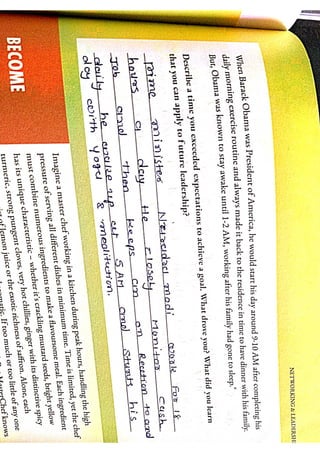 NETWORKING & LEADERSHI
When Barack Obama was President of America, he would start his day around 9-10 AM after completing his
daily morning exercise routine and always made it back to the residence in time to have dinner with his family.
But, Obama was known to stay awake until 1-2 AM, working after his family had gone to sleep.
Describe a time you exceeded expectations to achieve a goal. What drove you? What did you learn
that you can apply to future leadership?
prime minister modi work For 18
hours a day He closely Monitor each
Job and Then keeps on an Reaction to and
daily he up at 5 AM and starts his
day with Yoga & meditution.
BECOME
Imagine a master chef working in a kitchen during peak hours, handling the high
pressure of serving all different dishes in minimum time. Time is limited, yet the chef
must combine numerous ingredients to make a flavoursome meal. Each ingredient
has its unique characteristic – whether it's crackling mustard seeds, bright yellow
turmeric, strong pungent cloves, very hot chillies, ginger with its distinctive spicy
of lemon juice or the exotic richness of saffron. Alone, each
If too much or too little of any one
knows